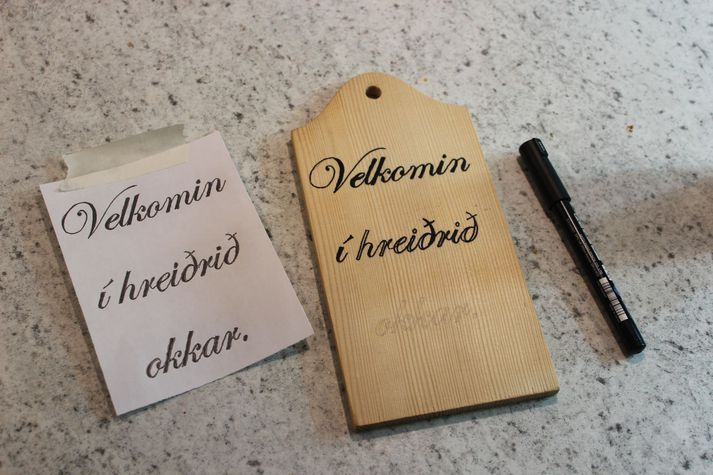 Velkomin
í hreiðrið
okkar.
Velkomin
í hreiðrið
okkar.